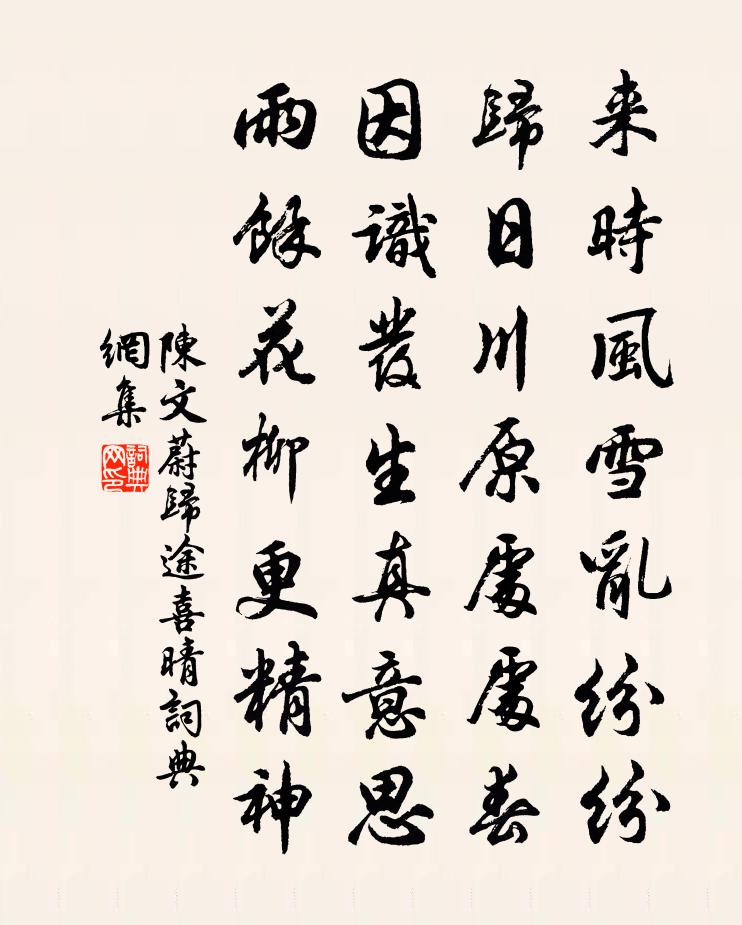 来時風雪亂紛紛
歸日川原處處春
因識發生真意思
雨餘花柳更精神
陳文蔚歸途喜晴詞典
網集
詞典
网印